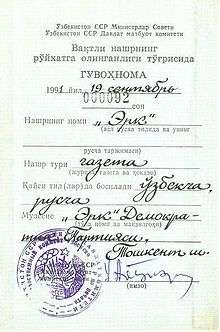 Ўзбекистон ССР Министрлар Совети
Ўзбекистон ССР Давлат матбуот комитети
Вақтли нашрнинг
рўйхатга олинганлиги тўғрисида
ГУВОҲНОМА
1991 йил „19 сентябрь
000092 сон
Нашрнинг номи „Эрк"
(асл нусха тилида ва унинг
русча таржимаси)
Нашр тури газета
(журнал, газета ва ҳоказо)
Қайси тил(лар)да босилади ўзбекча,
русча
Муассис „Эрк" Демокра-
тик Партияси,
Тошкент ш.
(имзо)